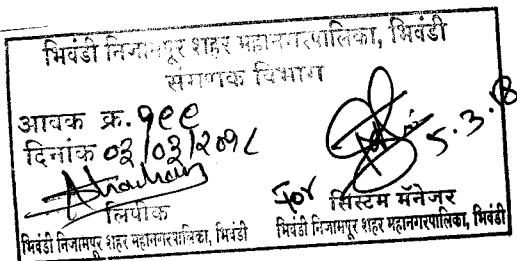 भिवंडी निजामपूर शहर महानगरपालिका, भिवंडी
संगणक विभाग
आवक क्र. १९९
दिनांक ०३/०३/२०१८
लिपीक
भिवंडी निजामपूर शहर महानगरपालिका, भिवंडी
5.3.18
For सिस्टम मॅनेजर
भिवंडी निजामपूर शहर महानगरपालिका, भिवंडी